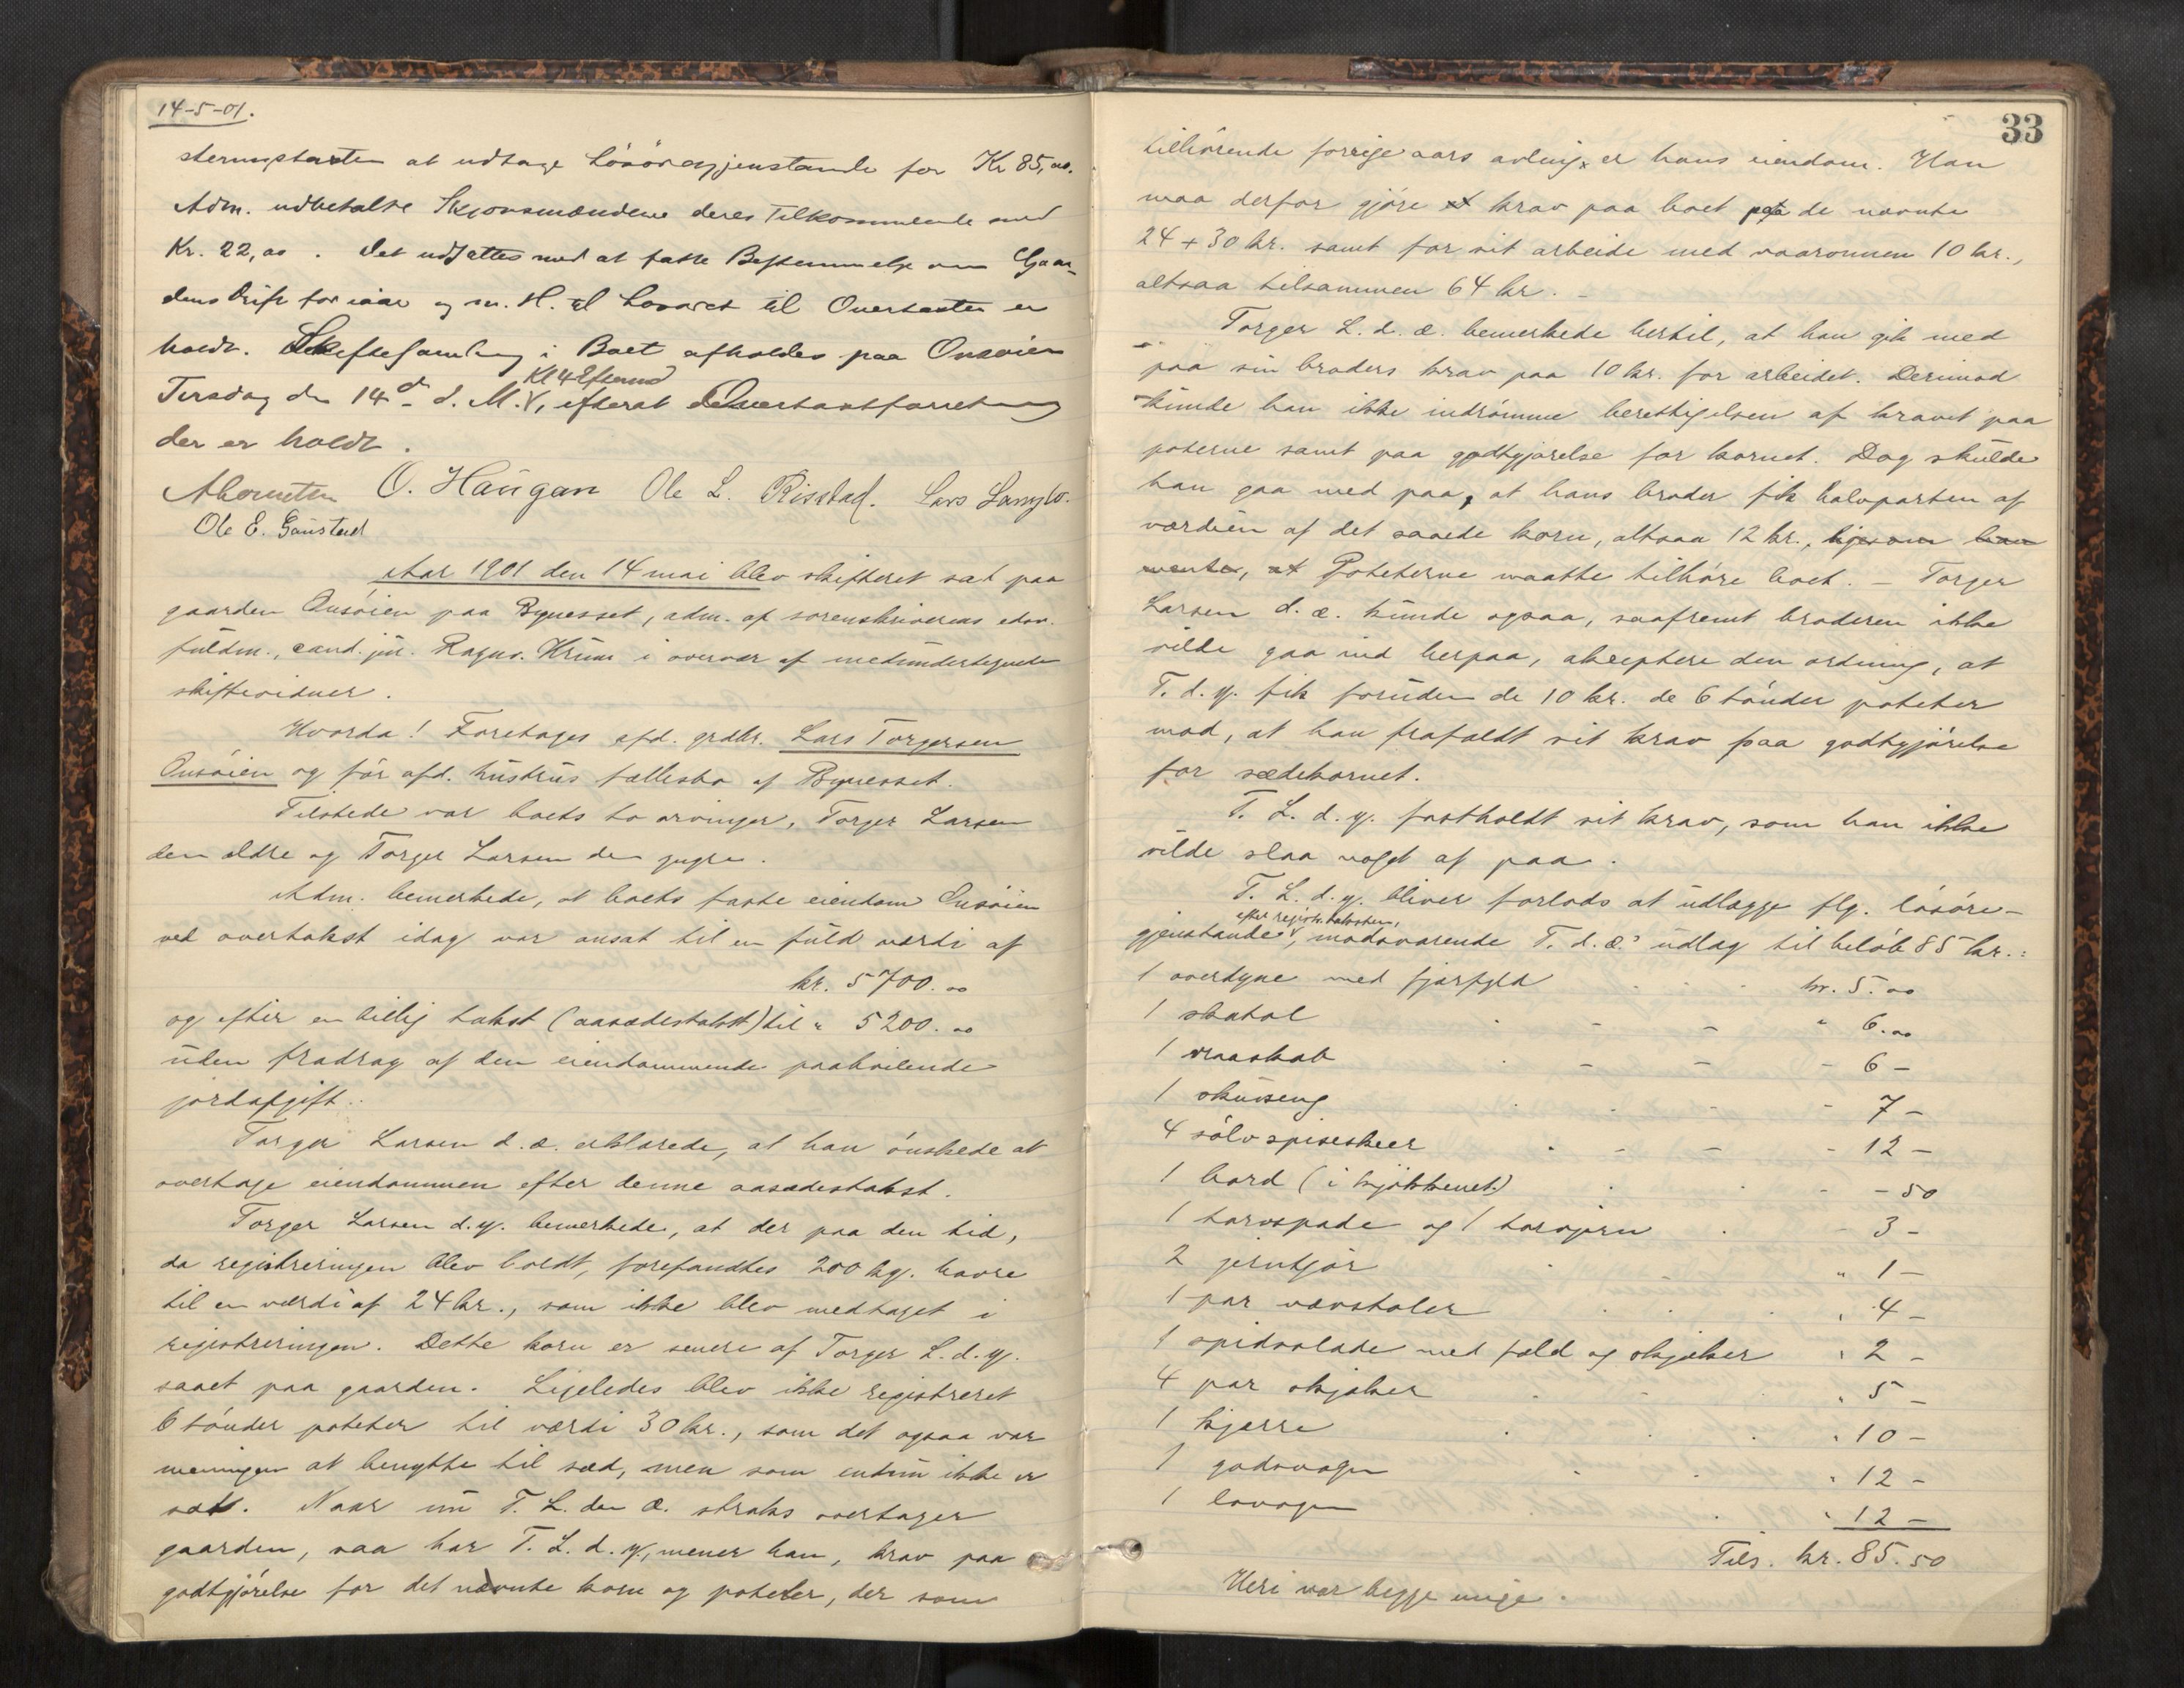 14-5-01.
at udtage Lösöregjenstande for Kr 85,oo.
Adm. udbetalte Skjønsmændene deres Tilkommende med
Kr. 22,oo. Det udsættes med at fatte Bestemmelse om Gaar-
dens Drift for iaar og m. H. til Løsøret til Overtaxten er
holdt. Skiftesamling i Boet afholdes paa Onsøien
Kl 4 Efterm
Tirsdag den 14de d. M. V, efterat Overtaxtforretning
der er holdt.
O. Haugan Ole L. Risstad. Lars
Ole E. Gaustad
Aar 1901 den 14 mai blev skifteret sat paa
gaarden Onsöien paa Bynesset, adm. af sorenskriverens edsv.
fuldm., cand. jur. Ragnv. Krum i overvær af medundertegnede
skiftevidner.
Hvorda! Foretoges afd. grdbr. Lars Torgersen
Onsöien og för afd. hustrus fællesbo af Bynesset.
Tilstede var boets to arvinger, Torger Larsen
den ældre og Torger Larsen den yngre.
Adm. bemerkede, at boets faste eiendom Onsöien
ved overtakst idag var ansat til en fuld værdi af
kr. 5700.oo
og efter en billig takst (aasædestakst) til " 5200.oo
uden fradrag af den eiendommende paahvilende
jordafgift.
Torger Larsen d. æ. erklærede, at han önskede at
overtage eiendommen efter denne aasædestakst.
Torger Larsen d. y. bemerkede, at der paa den tid,
da registreringen blev holdt, forefandtes 200 kg. havre
til en værdi af 24 kr., som ikke blev medtaget i
registreringen. Dette korn er senere af Torger L. d. y.
saaet paa gaarden. Ligeledes blev ikke registreret
6 tönder poteter til værdi 30 kr., som det ogsaa var
meningen at benytte til sæd, men som endnu ikke er
sat. Naar nu T. L. den æ. straks overtager
gaarden, saa har T. L. d. y., mener han, krav paa
godtgjörelse for det nævnte korn og poteter, der som
33
tilhörende forrige aars avling er hans eiendom. Han
maa derfor gjöre et krav paa boet paa de nævnte
24 + 30 kr. samt for sit arbeide med vaaronnen 10 kr.,
altsaa tilsammen 64 kr. -
Torger L. d. æ. bemerkede hertil, at han gik med
paa sin broders krav paa 10 kr. for arbeidet. Derimod
kunde han ikke indrömme berettigelsen af kravet paa
poterne samt paa godtgjørelse for kornet. Dog skulde
han gaa med paa, at hans broder fik halvparten af
værdien af det saaede korn, altsaa 12 kr., ligesom han
mente, at Poteterne maatte tilhöre boet. - Torger
Larsen d. æ. kunde ogsaa, saafremt broderen ikke
vilde gaa ind herpaa, akceptere den ordning, at
T. d. y. fik foruden de 10 kr. de 6 tönder poteter
mod, at han frafaldt sit krav paa godtgjörelse
for sædekornet.
T. L. d. y. fastholdt sit krav, som han ikke
vilde slaa noget af paa.
T. L. d. y. bliver forlods at udlægge flg. lösöre-
efter registr.taksten,
gjenstande V, modsvarende T. d. æ.' udlag til belöb 85 kr.:
1 overdyne med fjærfyld kr. 5.oo
1 skatol " 6.oo
1 vraaskab - 6 -
1 skuvseng - 7 -
4 sölvspiseskeer - 12 -
1 bord (i kjökkenet) - - 50
1 torvspade og 1 torvjern - 3 -
2 jerntjör " 1 -
1 par vævstoler " 4 -
1 spidsslæde med fæld og skjæker " 2 -
4 par skjæker " 5 -
1 kjærre " 10 -
1 gadsvogn " 12 -
1 lovogn " 12 -
Tils. kr. 85.50
Heri var begge enige.